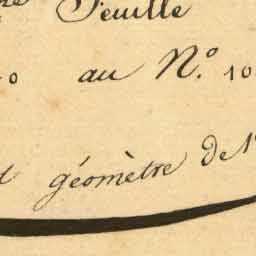 Feuille
au N.º 10
géomètre de